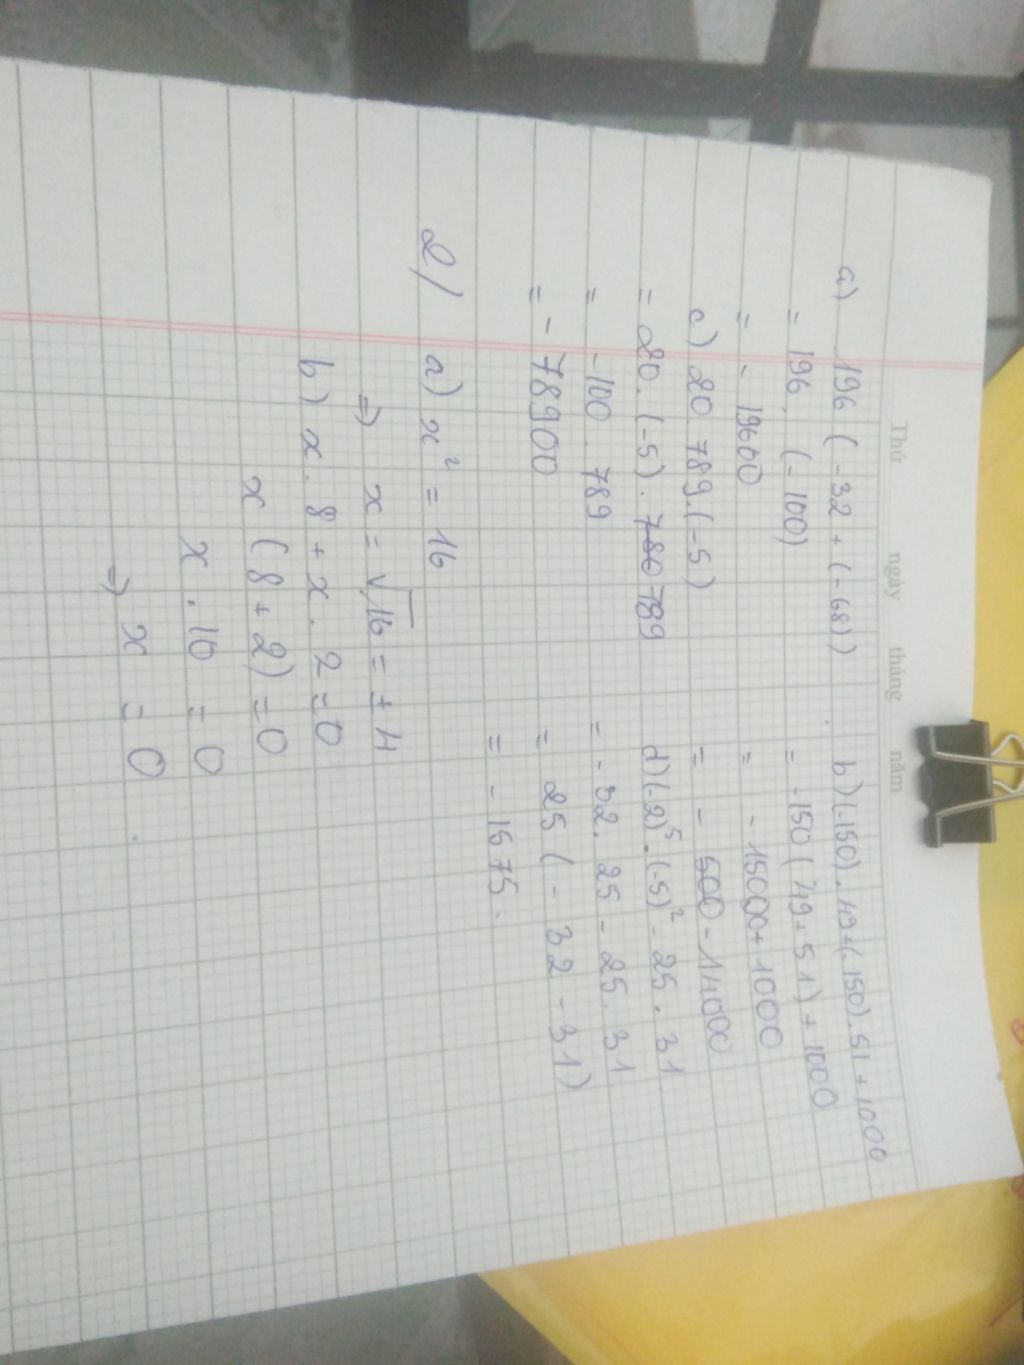 Thứ ngày tháng năm
a) 196 ( -32 + (-68))
= 196. (-100)
= - 19600
c) 20. 789. (-5)
= 20. (-5). 780 789
= -100. 789
= - 78900
b) (-150). 49 + (-150). 51 + 1000
= -150 ( 49 + 51) + 1000
= - 15000 + 1000
= - 500 - 14000
d) (-2)⁵. (-5)² - 25. 31
= - 32. 25 - 25. 31
= 25 ( - 32 - 31)
= - 1575.
2/ a) x² = 16
⇒ x = √16 = ± 4
b) x. 8 + x. 2 = 0
x ( 8 + 2) = 0
x. 10 = 0
⇒ x = 0.